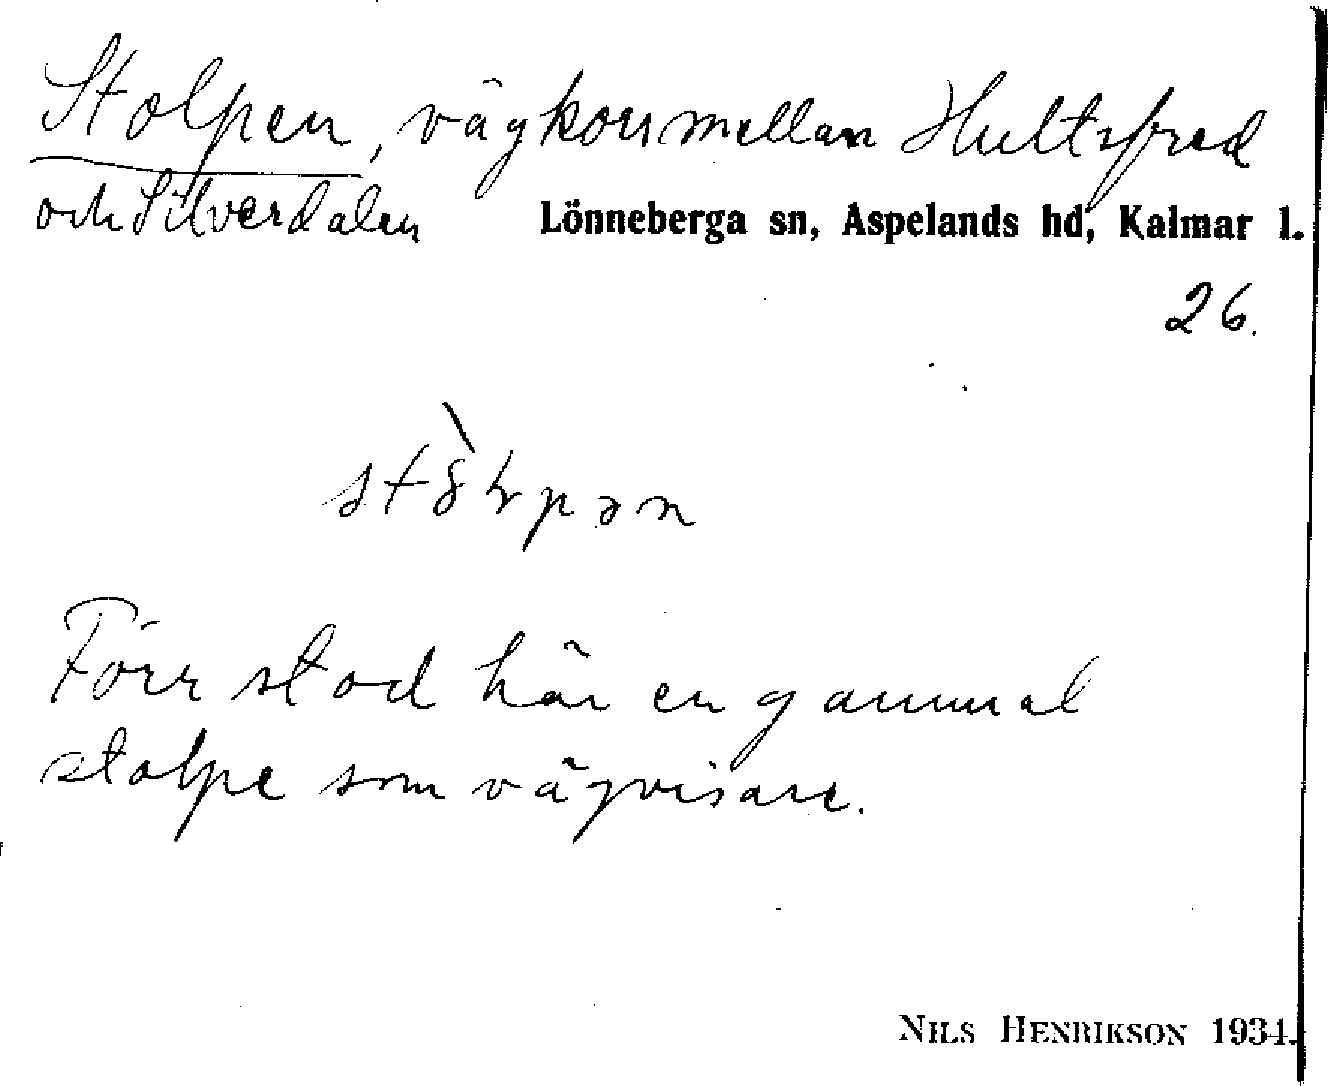 Stolpen, vägkors mellan Hultsfred
och Silverdalen Lönneberga sn, Aspelands hd, Kalmar l.
26.
Förr stod här en gammal
stolpe som vägvisare.
NILS HENRIKSON 1934.